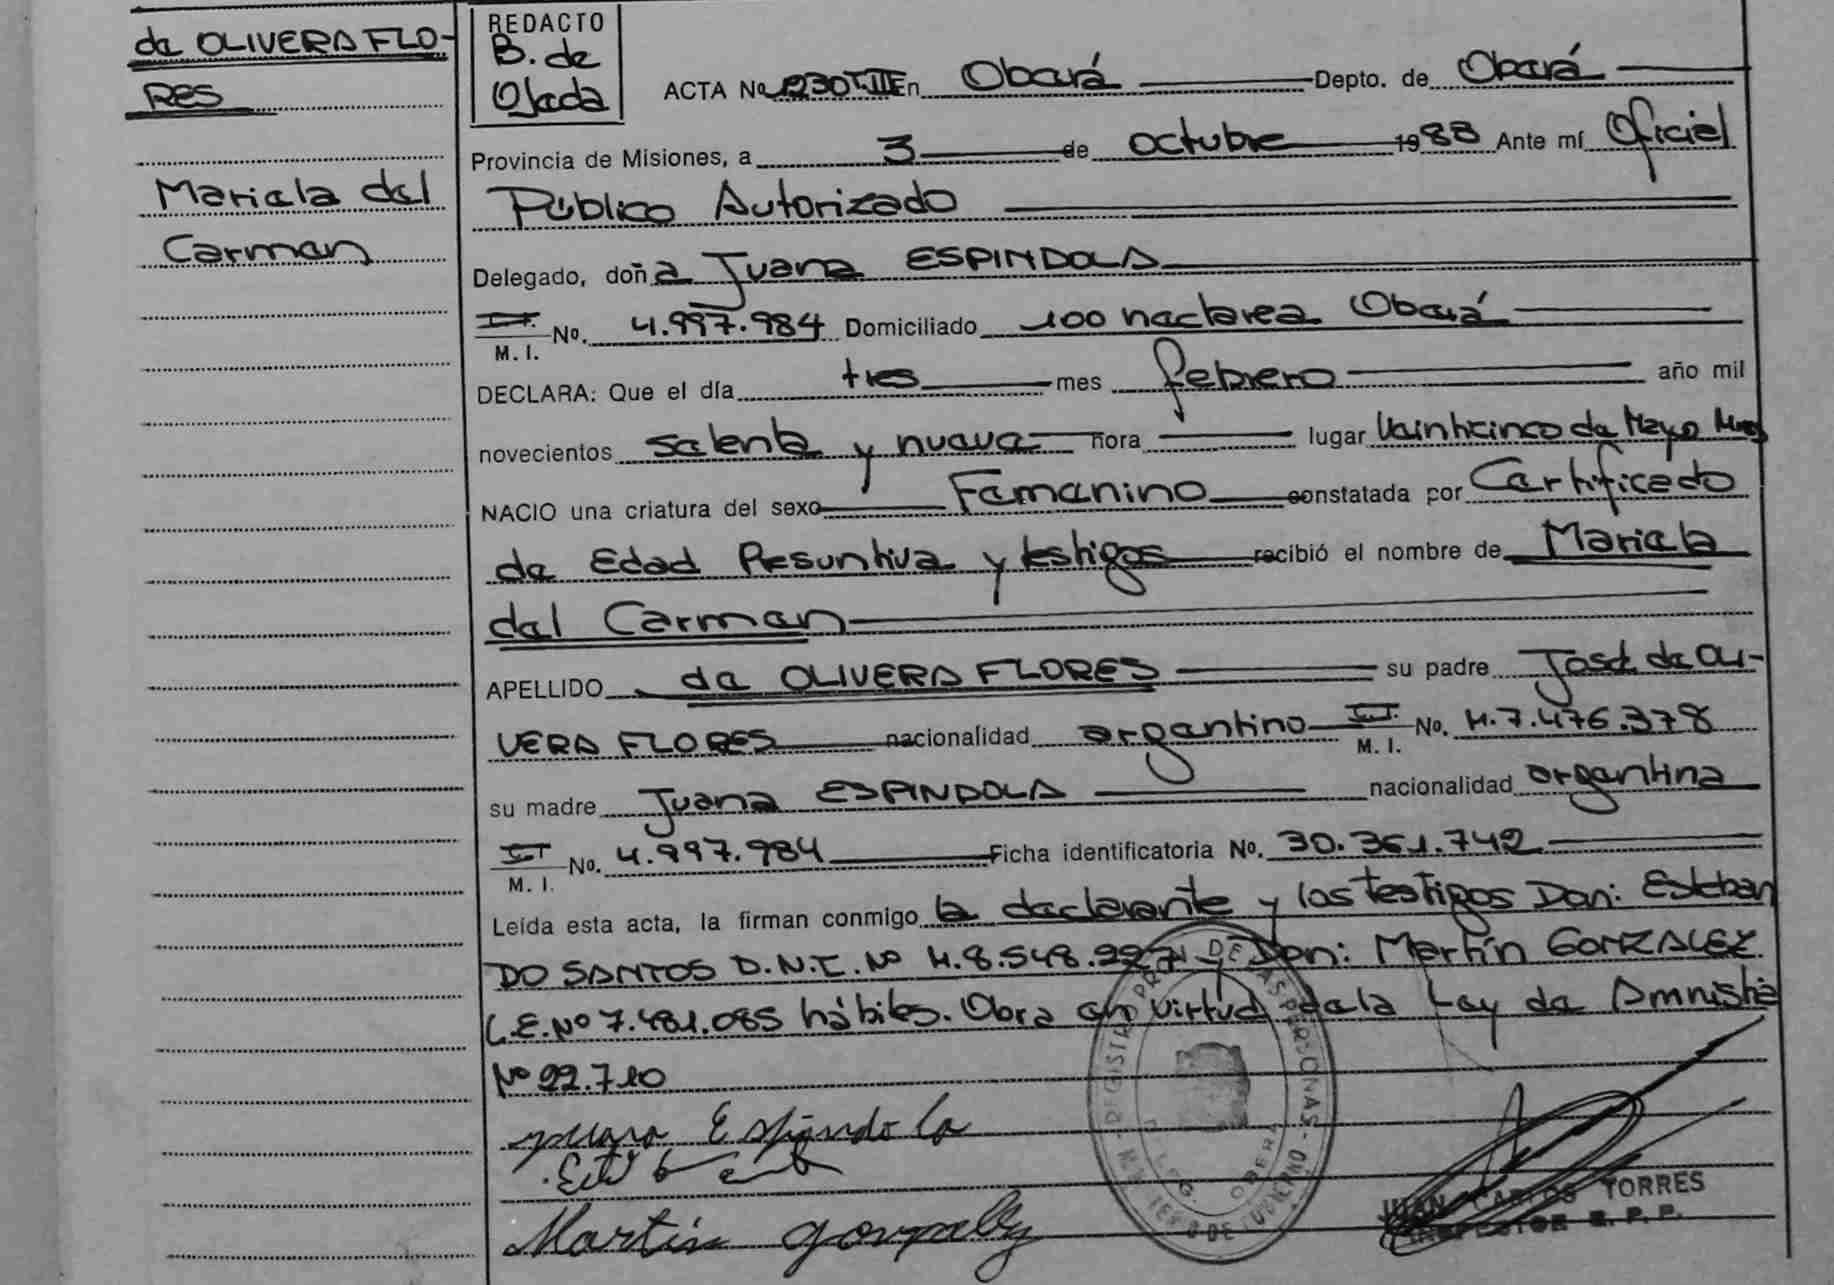 de OLIVERA FLO-
RES
Mariela del
Carmen
REDACTO
B. de
Ojeda
ACTA No 1230 T.III En Oberá Depto. de Oberá
Provincia de Misiones, a 3 de octubre 1988 Ante mí Oficial
Público Autorizado
Delegado, doña Juana ESPINDOLA
No. 4.997.984 Domiciliado 100 hectarea Oberá
M. I.
DECLARA: Que el día tres mes febrero año mil
novecientos setenta y nueve hora lugar Veinticinco de Mayo Mnes
NACIO una criatura del sexo Femenino constatada por Certificado
de Edad Presuntiva y testigos recibió el nombre de Mariela
del Carmen
APELLIDO de OLIVERA FLORES su padre José de OLI-
VERA FLORES nacionalidad argentino No. M.7.476.378
M. I.
su madre Juana ESPINDOLA nacionalidad argentina
No. 4.997.984 Ficha identificatoria No. 30.361.742
M. I.
Leída esta acta, la firman conmigo la declarante y los testigos Don: Esteban
DO SANTOS D.N.I. Nº M.8.548.997 y Don: Martín GONZALEZ
L.E. Nº 7.481.085 hábiles. Obra en virtud de la Ley de Amnistía
Nº 22.710
Juana Espindola
Martin gonzalez
REGISTRO PROV. DE LAS PERSONAS
DELEG. OBERA
JUAN CARLOS TORRES
INSPECTOR R. P. P.